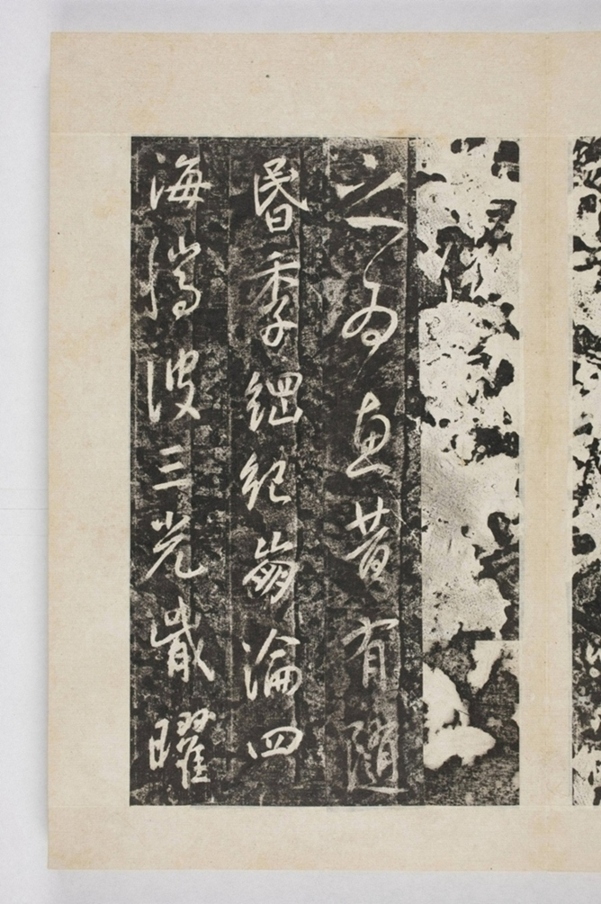 之為惠昔有隨
昬季綱紀崩淪四
海騰波三光戢曜